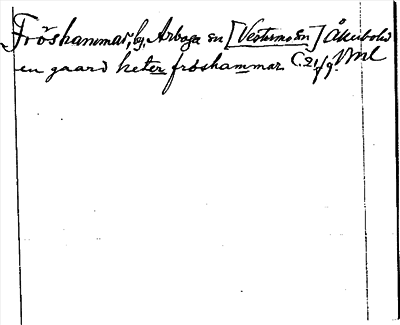 Fröshammar, by, Arboga sn [Vestermo sn] Åkerbo hd
en gaard heter froshammar C. 21, f 9. Vml